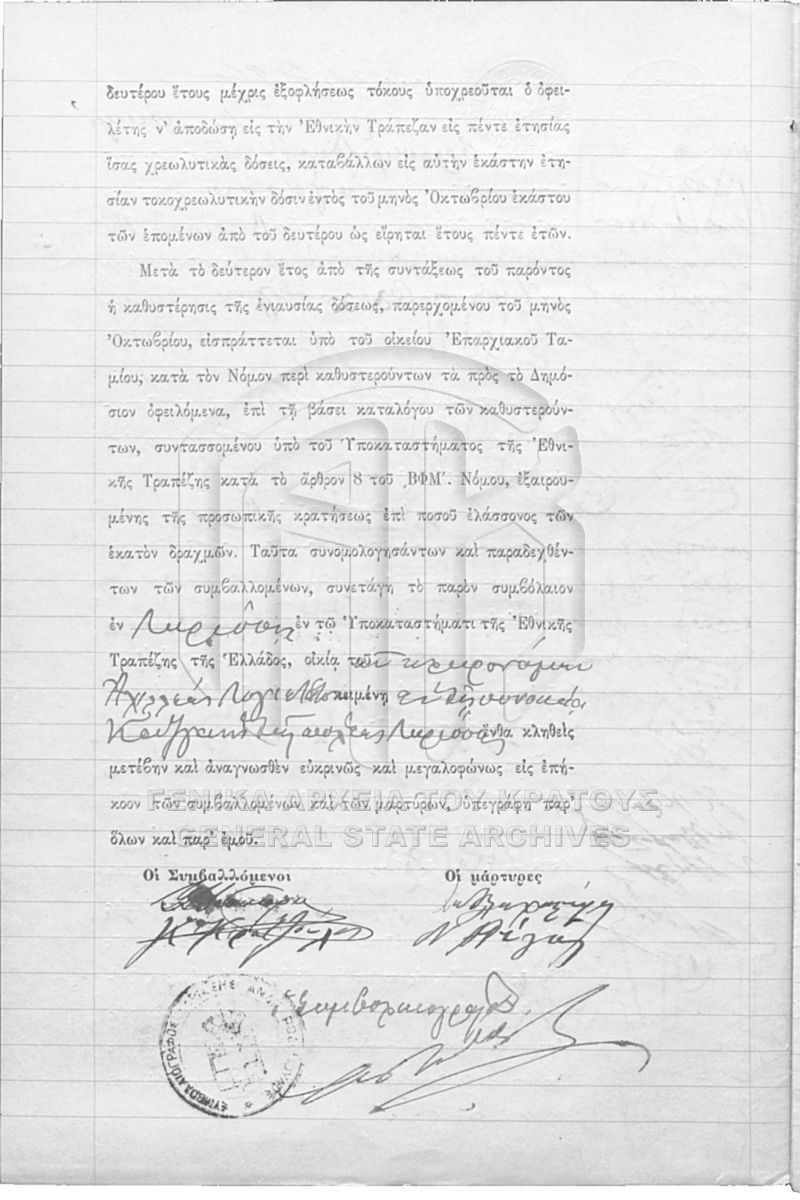 δευτέρου ἔτους μέχρις ἐξοφλήσεως τόκους ὑποχρεοῦται ὁ ὀφει-
λέτης ν' ἀποδώσῃ εἰς τὴν Ἐθνικὴν Τράπεζαν εἰς πέντε ἐτησίας
ἴσας χρεωλυτικὰς δόσεις, καταβάλλων εἰς αὐτὴν ἑκάστην ἐτη-
σίαν τοκοχρεωλυτικὴν δόσιν ἐντὸς τοῦ μηνὸς Ὀκτωβρίου ἑκάστου
τῶν ἑπομένων ἀπὸ τοῦ δευτέρου ὡς εἴρηται ἔτους πέντε ἐτῶν.
Μετὰ τὸ δεύτερον ἔτος ἀπὸ τῆς συντάξεως τοῦ παρόντος
ἡ καθυστέρησις τῆς ἐνιαυσίας δόσεως, παρερχομένου τοῦ μηνὸς
Ὀκτωβρίου, εἰσπράττεται ὑπὸ τοῦ οἰκείου Ἐπαρχιακοῦ Τα-
μίου, κατὰ τὸν Νόμον περὶ καθυστερούντων τὰ πρὸς τὸ Δημό-
σιον ὀφειλόμενα, ἐπὶ τῇ βάσει καταλόγου τῶν καθυστερούν-
των, συντασσομένου ὑπὸ τοῦ Ὑποκαταστήματος τῆς Ἐθνι-
κῆς Τραπέζης κατὰ τὸ ἄρθρον 8 τοῦ ͵ΒΦΜ'. Νόμου, ἐξαιρου-
μένης τῆς προσωπικῆς κρατήσεως ἐπὶ ποσοῦ ἐλάσσονος τῶν
ἑκατὸν δραχμῶν. Ταῦτα συνομολογησάντων καὶ παραδεχθέν-
των τῶν συμβαλλομένων, συνετάγη τὸ παρὸν συμβόλαιον
ἐν Λαρίσσῃ ἐν τῷ Ὑποκαταστήματι τῆς Ἐθνικῆς
Τραπέζης τῆς Ἑλλάδος, οἰκίᾳ τῶν κληρονόμων
κειμένῃ ἐν τῇ συνοικίᾳ
Λαρίσσης ἔνθα κληθεὶς
μετέβην καὶ ἀναγνωσθὲν εὐκρινῶς καὶ μεγαλοφώνως εἰς ἐπή-
κοον τῶν συμβαλλομένων καὶ τῶν μαρτύρων, ὑπεγράφη παρ'
ὅλων καὶ παρ' ἐμοῦ.
ΓΕΝΙΚΑ ΑΡΧΕΙΑ ΤΟΥ ΚΡΑΤΟΥΣ
GENERAL STATE ARCHIVES
Οἱ Συμβαλλόμενοι Οἱ μάρτυρες
Ὁ Συμβολαιογράφος
ΣΥΜΒΟΛΑΙΟΓΡΑΦΟΣ